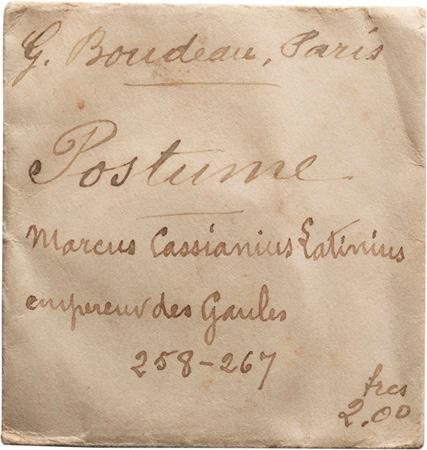 G. Boudeau, Paris
Postume
Marcus Cassianius Latinius
empereur des Gaules
258-267
frcs
2.00